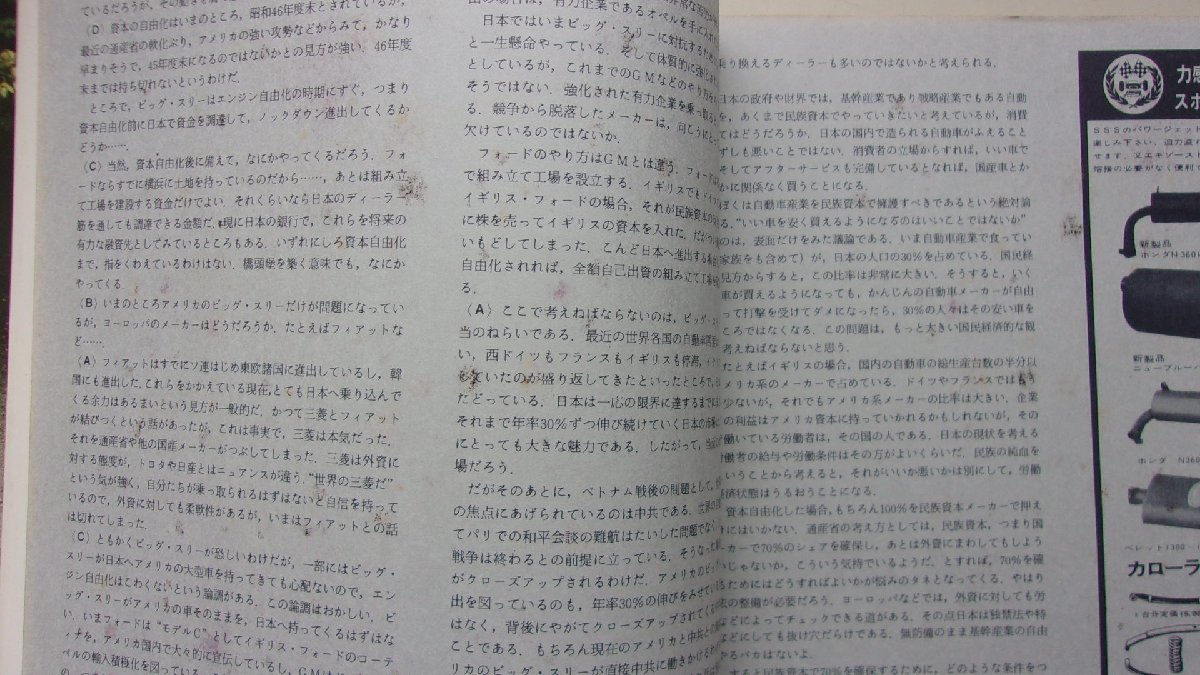 ているだろうが、その動きを
(D) 資本の自由化はいまのところ、昭和46年度末とされているが、
最近の通産省の軟化ぶり、アメリカの強い攻勢などからみて、かなり
早まりそうで、45年度末になるのではないかとの見方が強い．46年度
末までは持ち切れないというわけだ．
ところで、ビッグ・スリーはエンジン自由化の時期にすぐ，つまり
資本自由化前に日本で資金を調達して，ノックダウン進出してくるか
どうか……．
(C) 当然，資本自由化後に備えて，なにかやってくるだろう．フォ
ードならすでに横浜に土地を持っているのだから……，あとは組み立
て工場を建設する資金だけでよい．それくらいなら日本のディーラー
筋を通しても調達できる金額だ．現に日本の銀行で，これらを将来の
有力な融資先としてみているところもある．いずれにしろ資本自由化
まで，指をくわえているわけはない．橋頭堡を築く意味でも，なにか
やってくる．
(B) いまのところアメリカのビッグ・スリーだけが問題になってい
るが，ヨーロッパのメーカーはどうだろうか．たとえばフィアットな
ど……．
(A) フィアットはすでにソ連はじめ東欧諸国に進出しているし，韓
国にも進出した．これらをかかえている現在，とても日本へ乗り込んで
くる余力はあるまいという見方が一般的だ．かつて三菱とフィアット
が結びつくという話があったが，これは事実で，三菱は本気だった．
それを通産省や他の国産メーカーがつぶしてしまった．三菱は外資に
対する態度が，トヨタや日産とはニュアンスが違う．“世界の三菱だ”
という気が強く，自分たちが乗っ取られるはずはないと自信を持って
いるので，外資に対しても柔軟性があるが，いまはフィアットとの話
は切れてしまった．
(C) ともかくビッグ・スリーが恐しいわけだが，一部にはビッグ・
スリーが日本へアメリカの大型車を持ってきても心配ないので，エン
ジン自由化はこわくないという論調がある．この論調はおかしい．ビ
ッグ・スリーがアメリカの車そのままを，日本へ持ってくるはずはな
い．いまフォードは“モデルC”としてイギリス・フォードのコーテ
ィナを，アメリカ国内で大々的に宣伝しているし，GMは
ペルの輸入積極化を図っている．
の場合は，有力企業であるオペルを手に入れ
日本ではいまビッグ・スリーに対抗するため
と一生懸命やっている．そして体質的に強
としているが，これまでのGMなどのやり方を
そうではない．強化された有力企業を乗っ取
る．競争から脱落したメーカーは，向こうに
欠けているのではないか．
フォードのやり方はGMとは違う．フォード
で組み立て工場を設立する．イギリスでも
イギリス・フォードの場合，それが民族資本の
に株を売ってイギリスの資本を入れた．だが
いもどしてしまった．こんど日本へ進出する
自由化されれば，全額自己出資の組み立て工場
る．
(A) ここで考えねばならないのは，ビッグ・
当のねらいである．最近の世界各国の自動車
い，西ドイツもフランスもイギリスも停滞，
していたのが盛り返してきたといったところで
たどっている．日本は一応の限界に達するまで
それまで年率30％ずつ伸び続けていく日本の市
にとっても大きな魅力である．したがって，
場だろう．
だがそのあとに，ベトナム戦後の問題として，
の焦点にあげられているのは中共である．
てパリでの和平会談の難航はたいした問題でなく
戦争は終わるとの前提に立っている．そうなった
がクローズアップされるわけだ．アメリカのビッグ
出を図っているのも，年率30％の伸びをみせている
はなく，背後にやがてクローズアップされてくる
である．もちろん現在のアメリカと中共との
リカのビッグ・スリーが直接中共に働きかける
乗り換えるディーラーも多いのではないかと考えられる．
日本の政府や財界では，基幹産業であり戦略産業でもある自動
を，あくまで民族資本でやっていきたいと考えているが，消費
てはどうだろうか．日本の国内で造られる自動車がふえること
ずしも悪いことではない．消費者の立場からすれば，いい車で
そしてアフターサービスも完備しているとなれば，国産車とか
かに関係なく買うことになる．
ぼくは自動車産業を民族資本で擁護すべきであるという絶対論
る．“いい車を安く買えるようになるのはいいことではないか”
のは，表面だけをみた議論である．いま自動車産業で食ってい
家族をも含めて）が，日本の人口の30％を占めている．国民経
見方からすると，この比率は非常に大きい．そうすると，いく
車が買えるようになっても，かんじんの自動車メーカーが自由
って打撃を受けてダメになったら，30％の人々はその安い車を
ころではなくなる．この問題は，もっと大きい国民経済的な観
考えねばならないと思う．
たとえばイギリスの場合，国内の自動車の総生産台数の半分以
メリカ系のメーカーで占めている．ドイツやフランスではもう
少ないが，それでもアメリカ系メーカーの比率は大きい．企業
の利益はアメリカ資本に持っていかれるかもしれないが，その
働いている労働者は，その国の人である．日本の現状を考える
労働者の給与や労働条件はその方がよいくらいだ．民族の純血を
いうことから考えると，それがいいか悪いかは別にして，労働
経済状態はうるおうことになる．
資本自由化した場合，もちろん100％を民族資本メーカーで押え
にはいかない．通産省の考え方としては，民族資本，つまり国
ーカーで70％のシェアを確保し，あとは外資にまわしてもしよう
いじゃないか，こういう気持でいるようだ．とすれば，70％を確
るためにはどうすればよいかが悩みのタネとなってくる．やはり
の整備が必要だろう．ヨーロッパなどでは，外資に対しても労
などによってチェックできる道がある．その点日本は独禁法や特
などにしても抜け穴だらけである．無防備のまま基幹産業の自由
やるバカはないよ．
すると民族資本で70％を確保するために，どのような条件をつ
力感
スポ
SSSのパワージェット
楽しみ下さい．迫力
せます．又エキゾースト
溶接の必要がなく便利
新製品
ホンダN360
新製品
ニューブルーバ
ホンダ N360
ベレット1300
カローラ
1台分定価